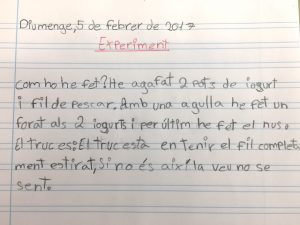 Diumenge, 5 de febrer de 2017
Experiment
Com ho he fet? He agafat 2 pots de iogurt
i fil de pescar, Amb una agulla he fet un
forat als 2 iogurts i per últim he fet el nus.
El truc es: El truc està en tenir el fil complet
ment estirat, Si no és així la veu no se
sent.